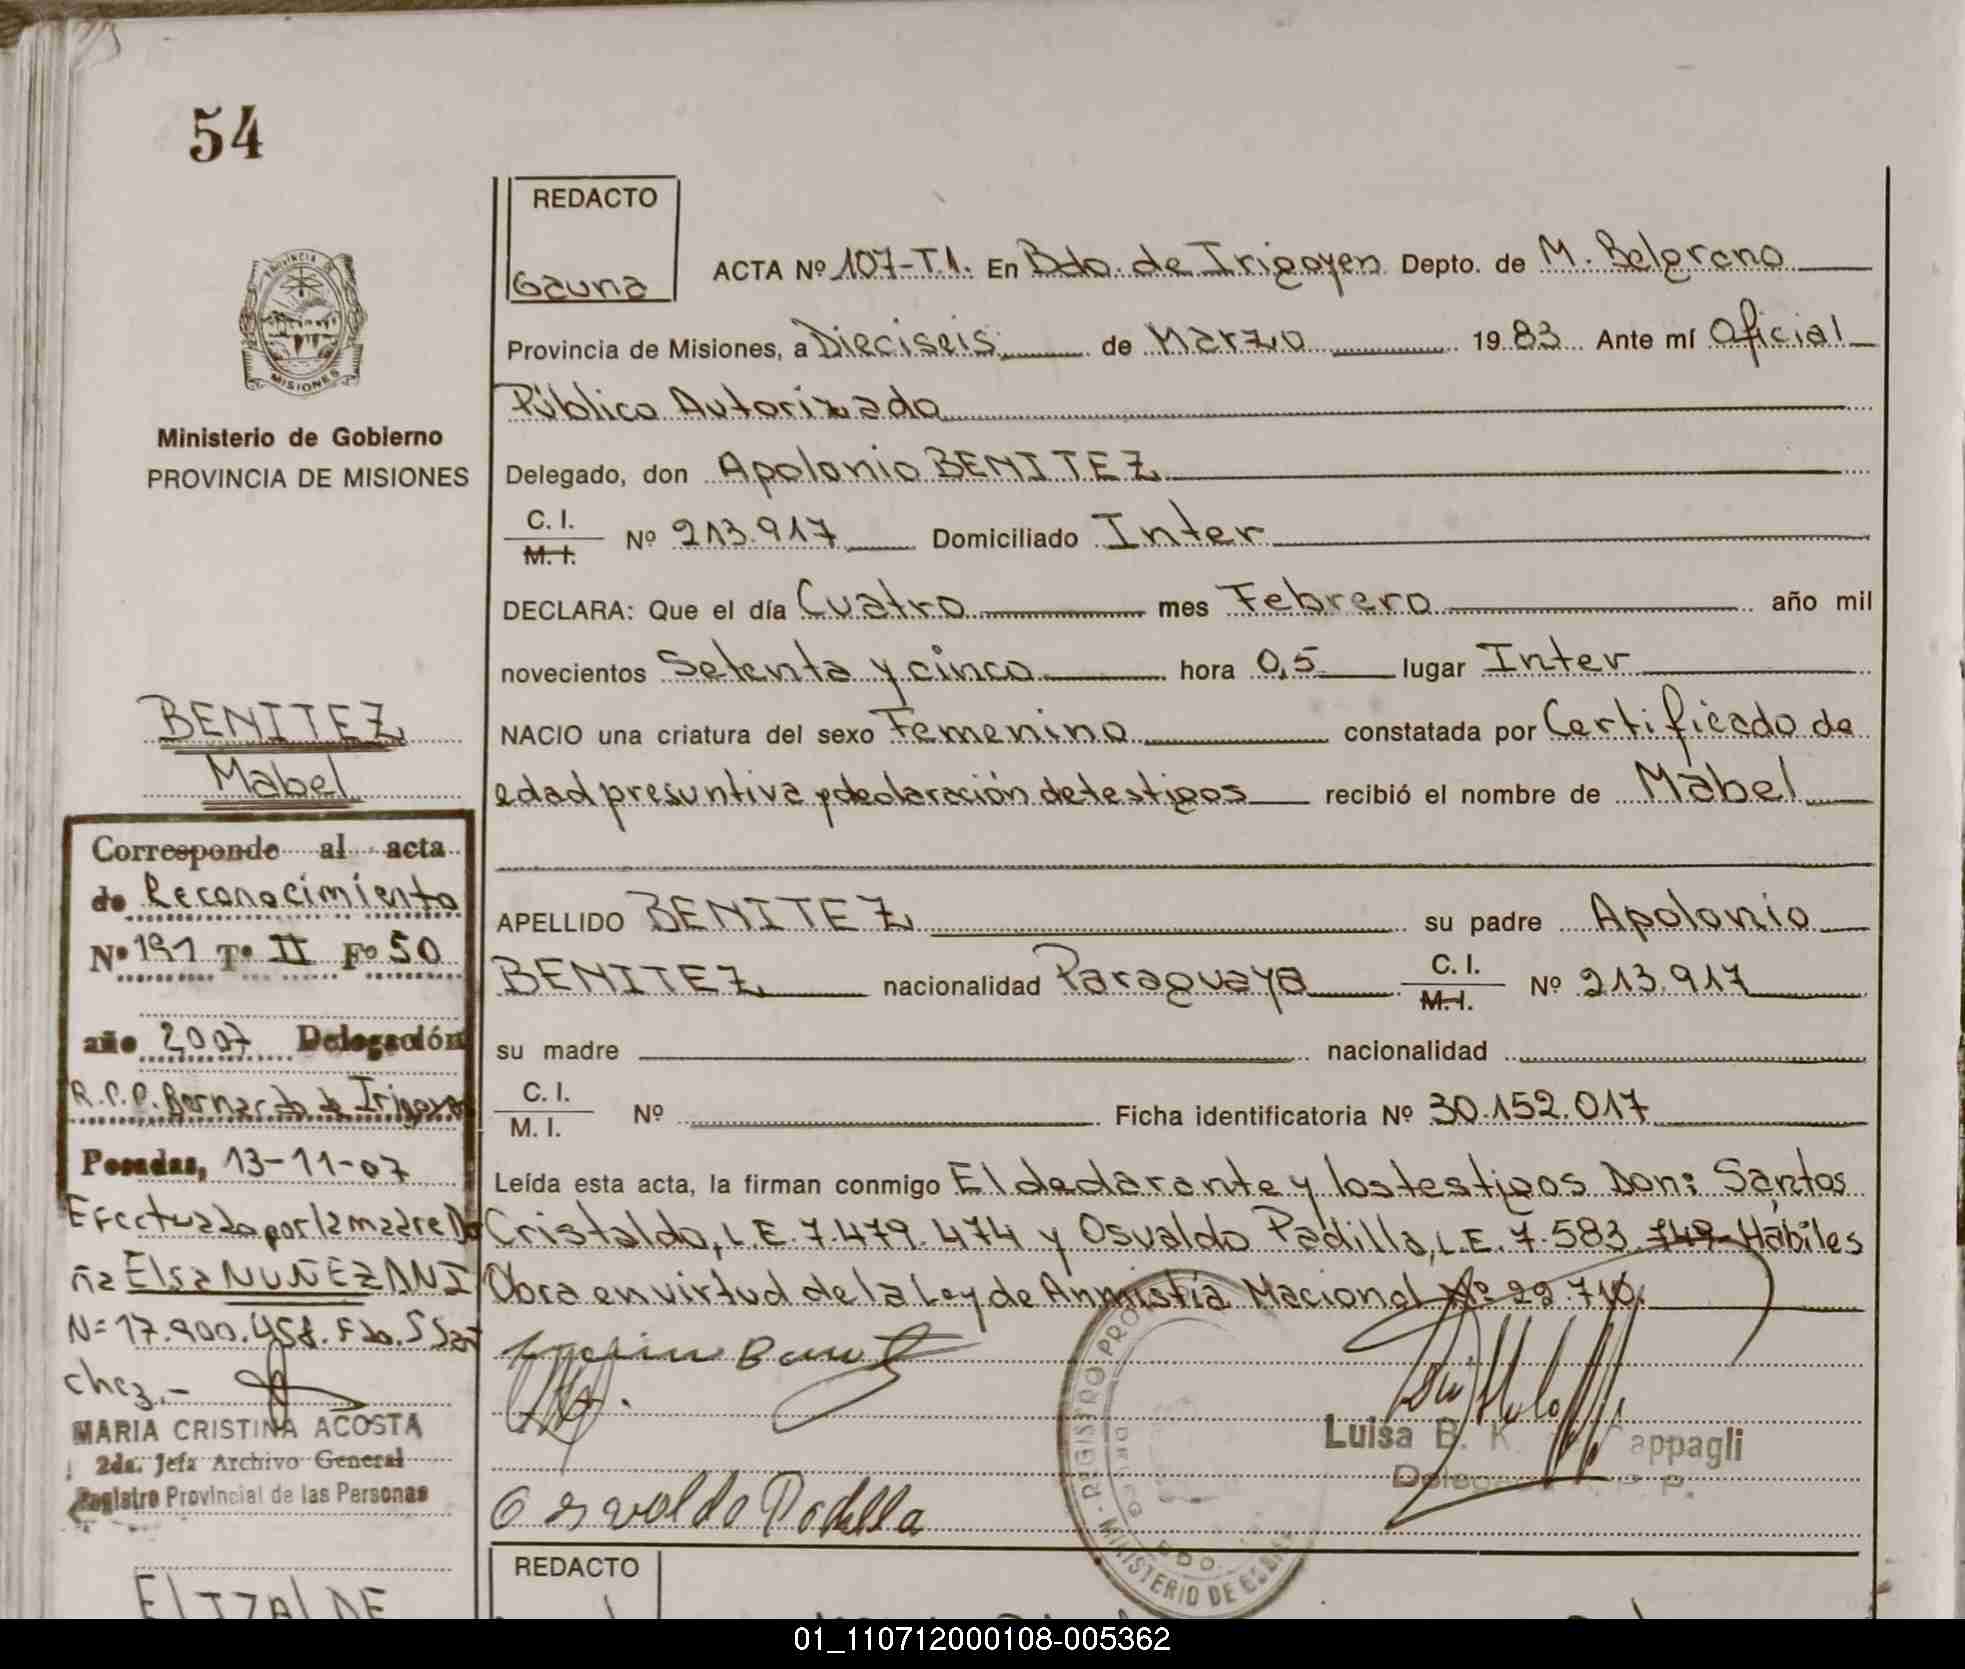 54
REDACTO
Gauna
ACTA Nº 107-T1. En Bdo. de Irigoyen Depto. de M. Belgrano
Provincia de Misiones, a Dieciseis de Marzo 19 83 Ante mí Oficial
Público Autorizado
Delegado, don Apolonio BENITEZ
C. I.
M. I. Nº 213.917 Domiciliado Inter
DECLARA: Que el día Cuatro mes Febrero año mil
novecientos Setenta y cinco hora 0,5 lugar Inter
NACIO una criatura del sexo Femenino constatada por Certificado de
edad presuntiva y declaración de testigos recibió el nombre de Mabel
APELLIDO BENITEZ su padre Apolonio
BENITEZ nacionalidad Paraguaya C. I. M. I. Nº 213.917
su madre nacionalidad
C. I.
M. I. Nº Ficha identificatoria Nº 30.152.017
Leída esta acta, la firman conmigo El declarante y los testigos Don: Santos
Cristaldo, L.E. 7.479.474 y Osvaldo Padilla, L.E. 7.583.749 Hábiles
Obra en virtud de la Ley de Anmistía Nacional Nº 22.710.
Osvaldo Padilla
Luisa B. K appagli
Deleg P.
REGISTRO PRO
MINISTERIO DE
BDO.
PROVINCIA DE
MISIONES
Ministerio de Gobierno
PROVINCIA DE MISIONES
BENITEZ
Mabel
Corresponde al acta
de Reconocimiento
Nº 191 Tº II Fº 50
año 2007 Delegación
R.P.P. Bernardo de Irigoyen
Posadas, 13-11-07
Efectuado por la madre Do
ña Elsa NUÑEZ DNI
N= 17.900.458. Fdo. S Sán
chez.-
MARIA CRISTINA ACOSTA
2da. Jefa Archivo General
Registro Provincial de las Personas
ELIZALDE
REDACTO
01_110712000108-005362